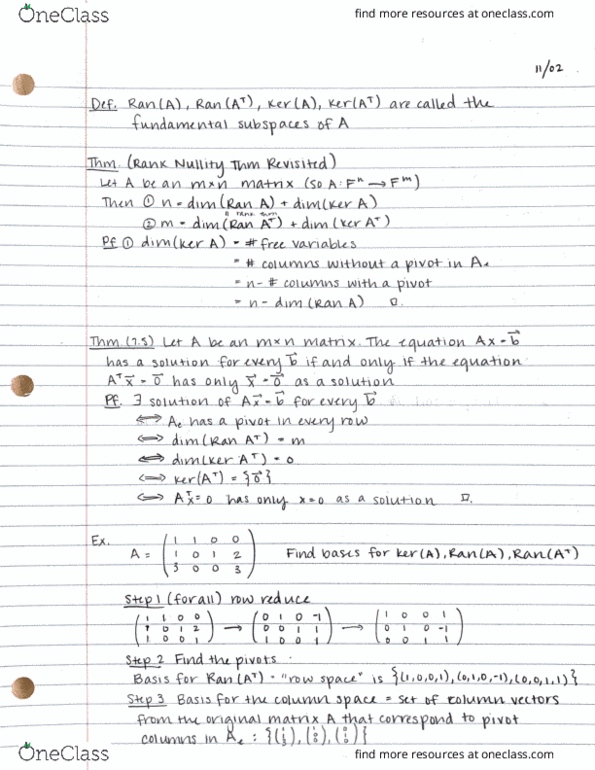 OneClass
find more resources at oneclass.com
11/02
Def. Ran(A), Ran(Aᵀ), Ker(A), Ker(Aᵀ) are called the
fundamental subspaces of A
Thm. (Rank Nullity Thm Revisited)
Let A be an m×n matrix (so A: Fⁿ → Fᵐ)
Then ① n = dim(Ran A) + dim(Ker A)
② m = dim(Ran Aᵀ) + dim(Ker Aᵀ)
Pf ① dim(Ker A) = # free variables
= # columns without a pivot in Aₑ
= n - # columns with a pivot
= n - dim(Ran A) □.
Thm (7.5) Let A be an m×n matrix. The equation Ax = b⃗
has a solution for every b⃗ if and only if the equation
Aᵀx⃗ = 0⃗ has only x⃗ = 0⃗ as a solution
Pf. ∃ solution of Ax⃗ = b⃗ for every b⃗
⟺ Aₑ has a pivot in every row
⟺ dim(Ran Aᵀ) = m
⟺ dim(Ker Aᵀ) = 0
⟺ Ker(Aᵀ) = {0⃗}
⟺ Aᵀx = 0 has only x = 0 as a solution □.
Ex.
A = (1 1 0 0
1 0 1 2
3 0 0 3)
Find bases for Ker(A), Ran(A), Ran(Aᵀ)
Step 1 (for all) row reduce
(1 1 0 0 → (0 1 0 -1 → (1 0 0 1
1 0 1 2 0 0 1 1 0 1 0 -1
1 0 0 1) 1 0 0 1) 0 0 1 1)
Step 2 Find the pivots.
Basis for Ran(Aᵀ) = "row space" is {(1,0,0,1),(0,1,0,-1),(0,0,1,1)}
Step 3 Basis for the column space = set of column vectors
from the original matrix A that correspond to pivot
columns in Aₑ : {(1 1 3), (1 0 0), (0 1 0)}
OneClass
find more resources at oneclass.com